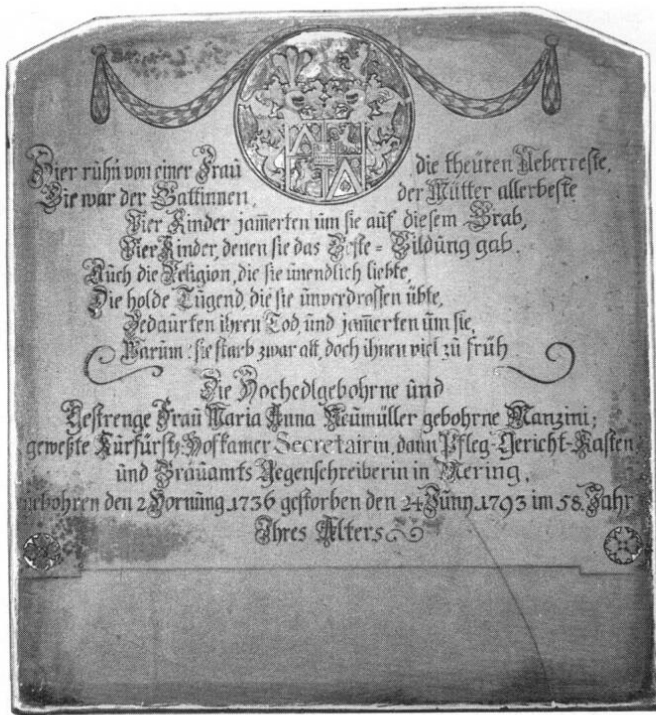 Hier ruhn von einer Frau die theuren Ueberreste,
Sie war der Gattinnen, der Mütter allerbeste
Vier Kinder jam̄erten um sie auf diesem Grab,
Vier Kinder, denen sie das Beste = Bildung gab.
Auch die Religion, die sie unendlich liebte,
Die holde Tugend, die sie unverdrossen übte,
Bedaurten ihren Tod, und jam̄erten um sie,
Warum: sie starb zwar alt, doch ihnen viel zu früh
Die Hochedlgebohrne und
Gestrenge Frau Maria Anna Neumüller gebohrne Manzini;
geweßte Kurfürstl: Hofkam̄er Secretairin, dann Pfleg-Gericht-Kasten
und Brauamts Gegenschreiberin in Mering,
gebohren den 2 Hornung 1736 gestorben den 24 Juny 1793 im 58. Jahr
Ihres Alters